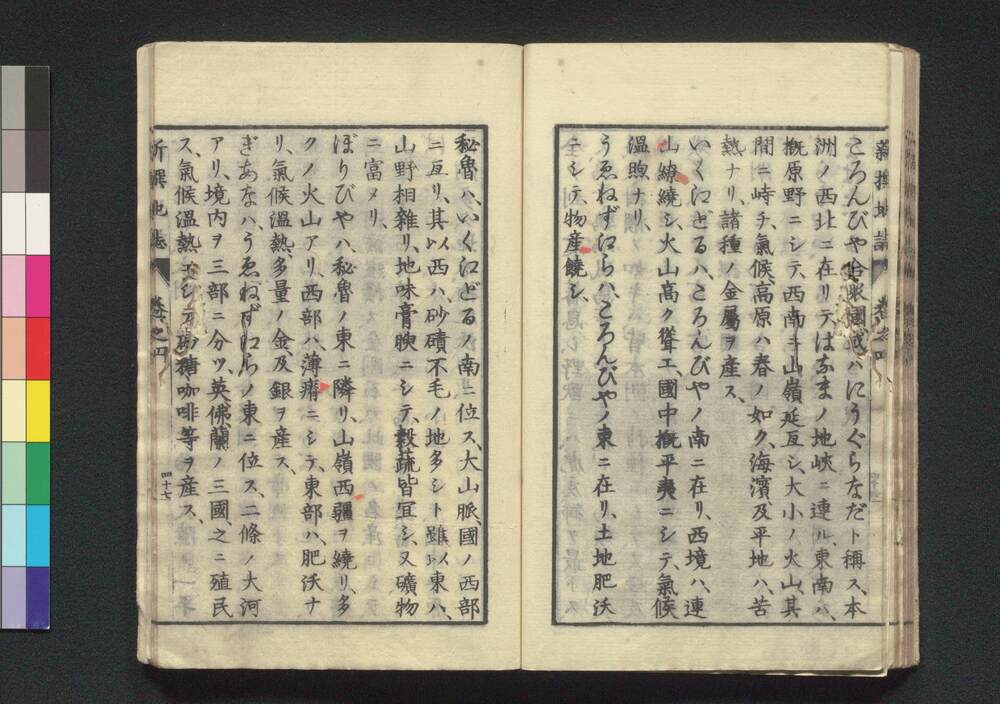 新撰地誌 卷之四
ころんびや合衆國或ハにうぐらなだト稱ス、本
洲ノ西北ニ在リテはなまノ地峽ニ連ル、東南ハ、
概原野ニシテ、西南ニ山嶺延亙シ、大小ノ火山、其
間ニ峙チ、氣候、高原ハ春ノ如ク、海濱、及平地ハ、苦
熱ナリ、諸種ノ金屬ヲ産ス、
いくわどるハ、ころんびやノ南ニ在リ、西境ハ、連
山繚繞シ、火山高ク聳エ、國中概平夷ニシテ、氣候
溫煦ナリ、
うゑねずわらハ、ころんびやノ東ニ在リ、土地肥沃
ニシテ、物産饒シ、
秘魯ハ、いくわどるノ南ニ位ス、大山脈、國ノ西部
ニ亙リ、其以西ハ、砂磧不毛ノ地多シト雖、以東ハ、
山野相雜リ、地味膏腴ニシテ、穀蔬皆宜シ、又礦物
ニ富メリ、
ぼりびやハ、秘魯ノ東ニ隣リ、山嶺西疆ヲ繞リ、多
クノ火山アリ、西部ハ、薄瘠ニシテ、東部ハ、肥沃ナ
リ、氣候溫熱、多量ノ金、及銀ヲ産ス、
ぎあなハ、うゑねずわらノ東ニ位ス、二條ノ大河
アリ、境内ヲ三部ニ分ツ、英佛蘭ノ三國、之ニ殖民
ス、氣候溫熱ニシテ、砂糖咖啡等ヲ産ス、
新撰地誌 卷之四 四十七